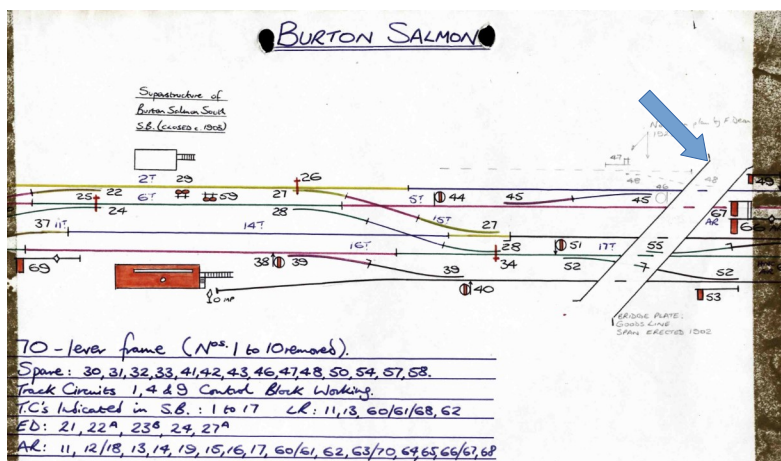 BURTON SALMON
Superstructure of
Burton Salmon South
S.B. (CLOSED c. 1903)
plan by F. Dean
47
2T 29 26
25 22 6T 59 27 5T 44 45 45 46 48 48 49
24 28 15T 67
37 11T 14T 27 AR 66
16T 28 51 17T 55
69 38 39 34 52 7 52
39 40 53
0 MP
BRIDGE PLATE:
GOODS LINE
SPAN ERECTED 1902
70-lever frame (Nos. 1 to 10 removed).
Spare: 30, 31, 32, 33, 41, 42, 43, 46, 47, 48, 50, 54, 57, 58.
Track Circuits 1, 4 & 9 Control Block Working.
T.C's Indicated in S.B.: 1 to 17 LR: 11, 13, 60/61/68, 62
ED: 21, 22A, 23B, 24, 27A
AR: 11, 12/18, 13, 14, 19, 15, 16, 17, 60/61, 62, 63/70, 64, 65, 66/67, 68